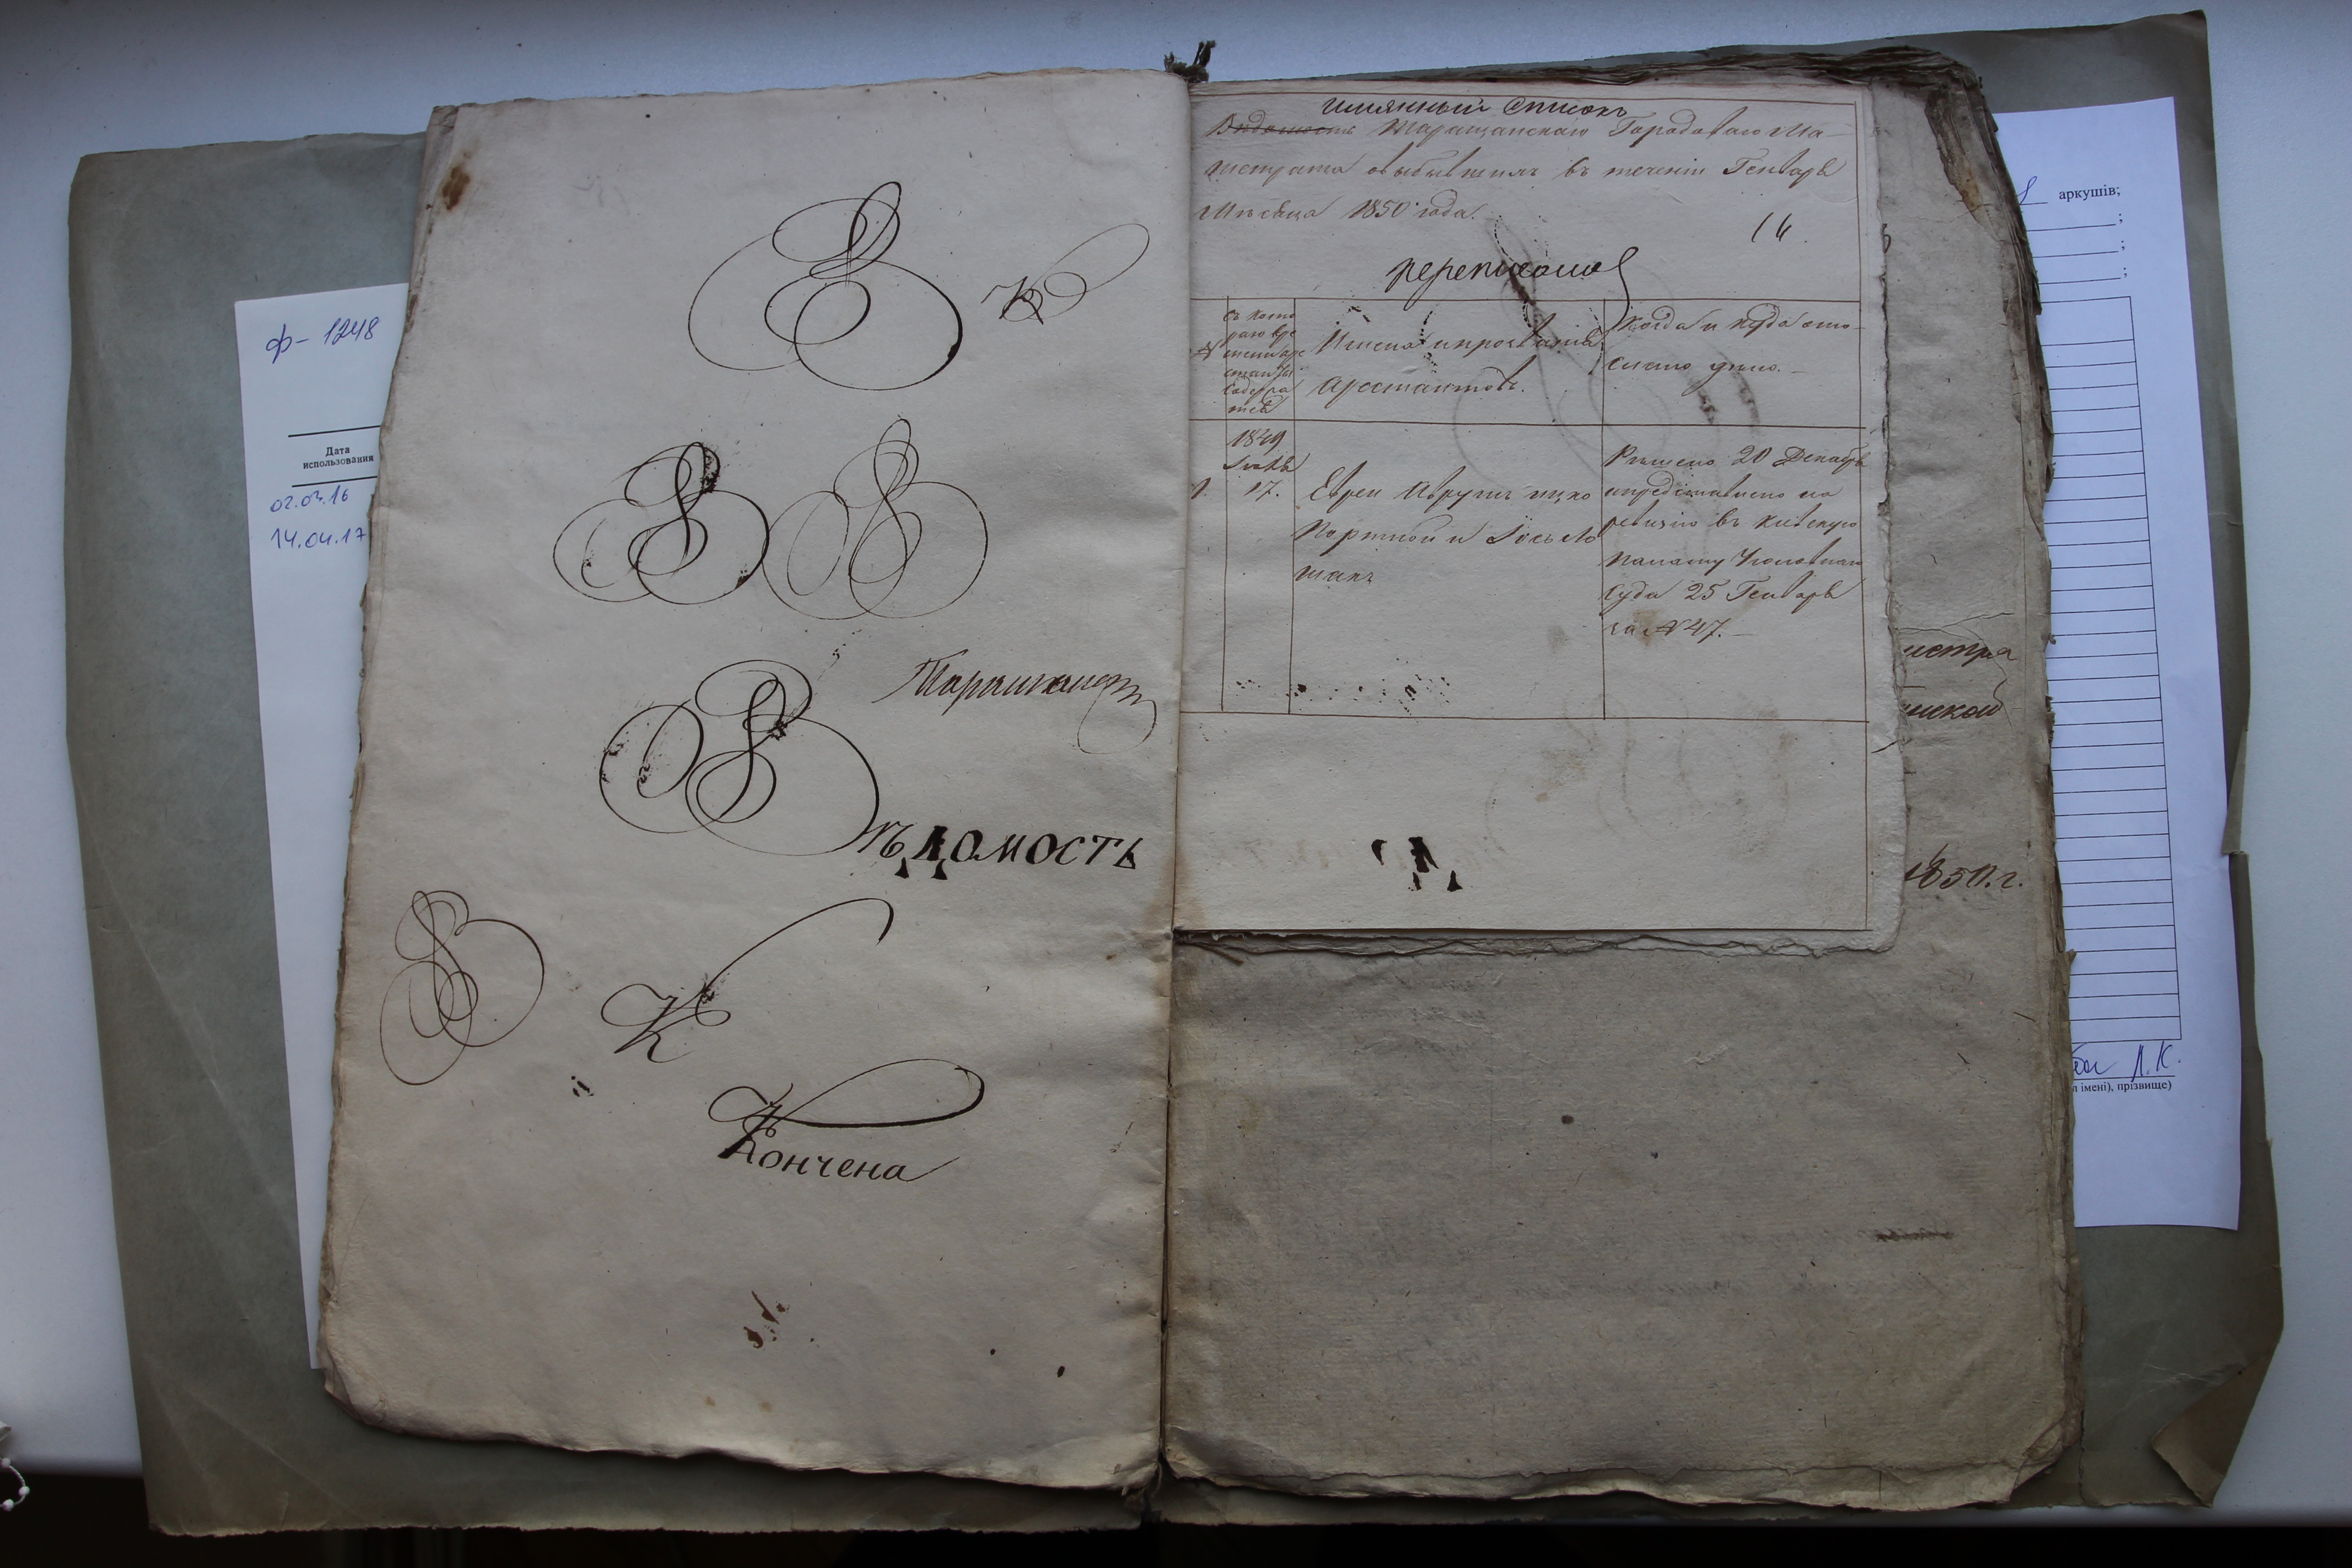 ф – 1248
Дата
использования
02.03.16
14.04.17
В К
В В
Таращанск
Вѣдомость
В К
Кончена
имянный списокъ
Вѣдомость Таращанскаго Городоваго Ма-
гистрата о выбывшихъ въ теченіи Генваря
Мѣсяца 1850 года.
14.
переписано
№
съ кото
раго вре
мени аре
станты
содержа
тся
Имена и прозванія
Арестантовъ.
Когда и куда ото-
слано дѣло.
1849
1.
17.
Евреи Аврумъ Ицко
Портной и Іось Ло
шакъ
Рѣшено 20 Декабря
и представлено на
ревизію въ Кіевскую
Палату Уголовнаго
Суда 25 Генваря
за № 47.
истра
нской
1850. г.
аркушів;
;
;
;
Л.К.
л імені), прізвище)